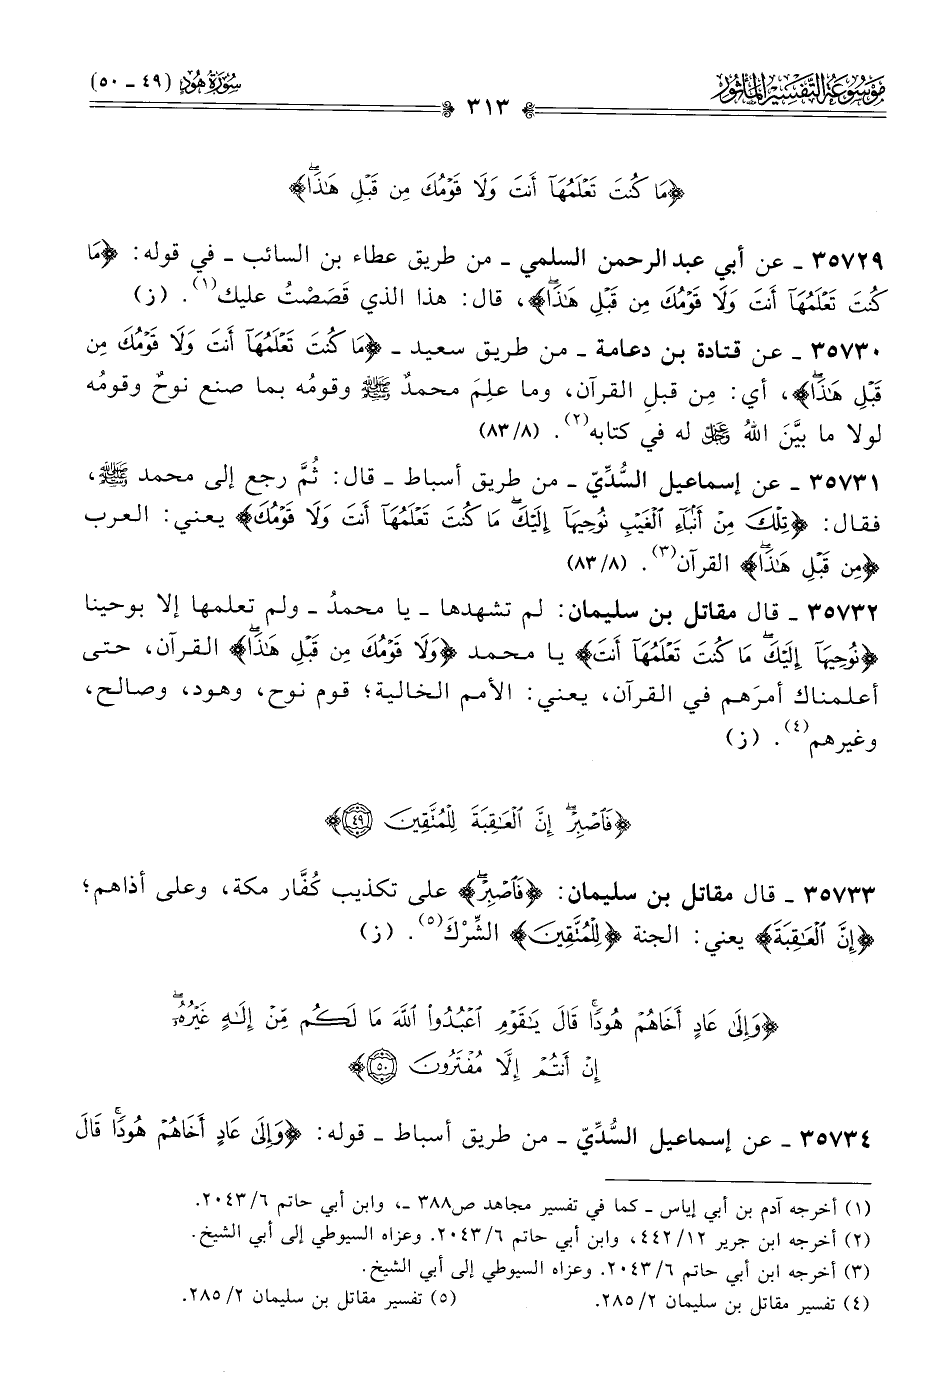 مَوْسُوعَةُ التَّفْسِيرِ الْمَأْثُور
٣١٣
سُورَةُ هُودٍ (٤٩ - ٥٠)
﴿مَا كُنتَ تَعْلَمُهَآ أَنتَ وَلَا قَوْمُكَ مِن قَبْلِ هَٰذَاۖ﴾
٣٥٧٢٩ - عن أبي عبد الرحمن السلمي - من طريق عطاء بن السائب - في قوله: ﴿مَا
كُنتَ تَعْلَمُهَآ أَنتَ وَلَا قَوْمُكَ مِن قَبْلِ هَٰذَاۖ﴾، قال: هذا الذي قَصَصْتُ عليك(١). (ز)
٣٥٧٣٠ - عن قتادة بن دعامة - من طريق سعيد - ﴿مَا كُنتَ تَعْلَمُهَآ أَنتَ وَلَا قَوْمُكَ مِن
قَبْلِ هَٰذَاۖ﴾، أي: مِن قبلِ القرآن، وما علِمَ محمدٌ ﷺ وقومُه بما صنع نوحٌ وقومُه
لولا ما بيَّنَ اللهُ ﷿ له في كتابه(٢). (٨٣/٨)
٣٥٧٣١ - عن إسماعيل السُّدِّيّ - من طريق أسباط - قال: ثُمَّ رجع إلى محمد ﷺ،
فقال: ﴿تِلْكَ مِنْ أَنۢبَآءِ ٱلْغَيْبِ نُوحِيهَآ إِلَيْكَۖ مَا كُنتَ تَعْلَمُهَآ أَنتَ وَلَا قَوْمُكَ﴾ يعني: العرب
﴿مِن قَبْلِ هَٰذَاۖ﴾ القرآن(٣). (٨٣/٨)
٣٥٧٣٢ - قال مقاتل بن سليمان: لم تشهدها - يا محمدُ - ولم تعلمها إلا بوحينا
﴿نُوحِيهَآ إِلَيْكَۖ مَا كُنتَ تَعْلَمُهَآ أَنتَ﴾ يا محمد ﴿وَلَا قَوْمُكَ مِن قَبْلِ هَٰذَاۖ﴾ القرآن، حتى
أعلمناك أمرَهم في القرآن، يعني: الأمم الخالية؛ قوم نوح، وهود، وصالح،
وغيرهم(٤). (ز)
﴿فَٱصْبِرْۖ إِنَّ ٱلْعَٰقِبَةَ لِلْمُتَّقِينَ ٤٩﴾
٣٥٧٣٣ - قال مقاتل بن سليمان: ﴿فَٱصْبِرْۖ﴾ على تكذيب كُفَّار مكة، وعلى أذاهم؛
﴿إِنَّ ٱلْعَٰقِبَةَ﴾ يعني: الجنة ﴿لِلْمُتَّقِينَ﴾ الشِّرْكَ(٥). (ز)
﴿وَإِلَىٰ عَادٍ أَخَاهُمْ هُودًاۚ قَالَ يَٰقَوْمِ ٱعْبُدُوا۟ ٱللَّهَ مَا لَكُم مِّنْ إِلَٰهٍ غَيْرُهُۥٓۖ
إِنْ أَنتُمْ إِلَّا مُفْتَرُونَ ٥٠﴾
٣٥٧٣٤ - عن إسماعيل السُّدِّيّ - من طريق أسباط - قوله: ﴿وَإِلَىٰ عَادٍ أَخَاهُمْ هُودًاۚ قَالَ
(١) أخرجه آدم بن أبي إياس - كما في تفسير مجاهد ص٣٨٨ -، وابن أبي حاتم ٢٠٤٣/٦.
(٢) أخرجه ابن جرير ٤٤٢/١٢، وابن أبي حاتم ٢٠٤٣/٦. وعزاه السيوطي إلى أبي الشيخ.
(٣) أخرجه ابن أبي حاتم ٢٠٤٣/٦. وعزاه السيوطي إلى أبي الشيخ.
(٤) تفسير مقاتل بن سليمان ٢٨٥/٢. (٥) تفسير مقاتل بن سليمان ٢٨٥/٢.